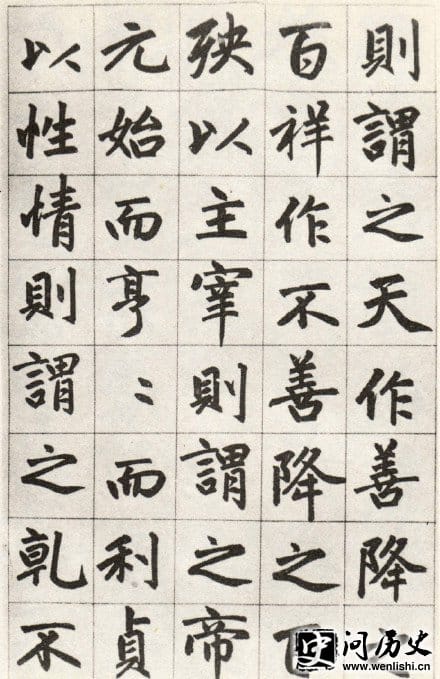 則謂之天作善降
百祥作不善降之百
殃以主宰則謂之帝
元始而亨〻而利貞
以性情則謂之乹不
问历史
www.wenlishi.cn